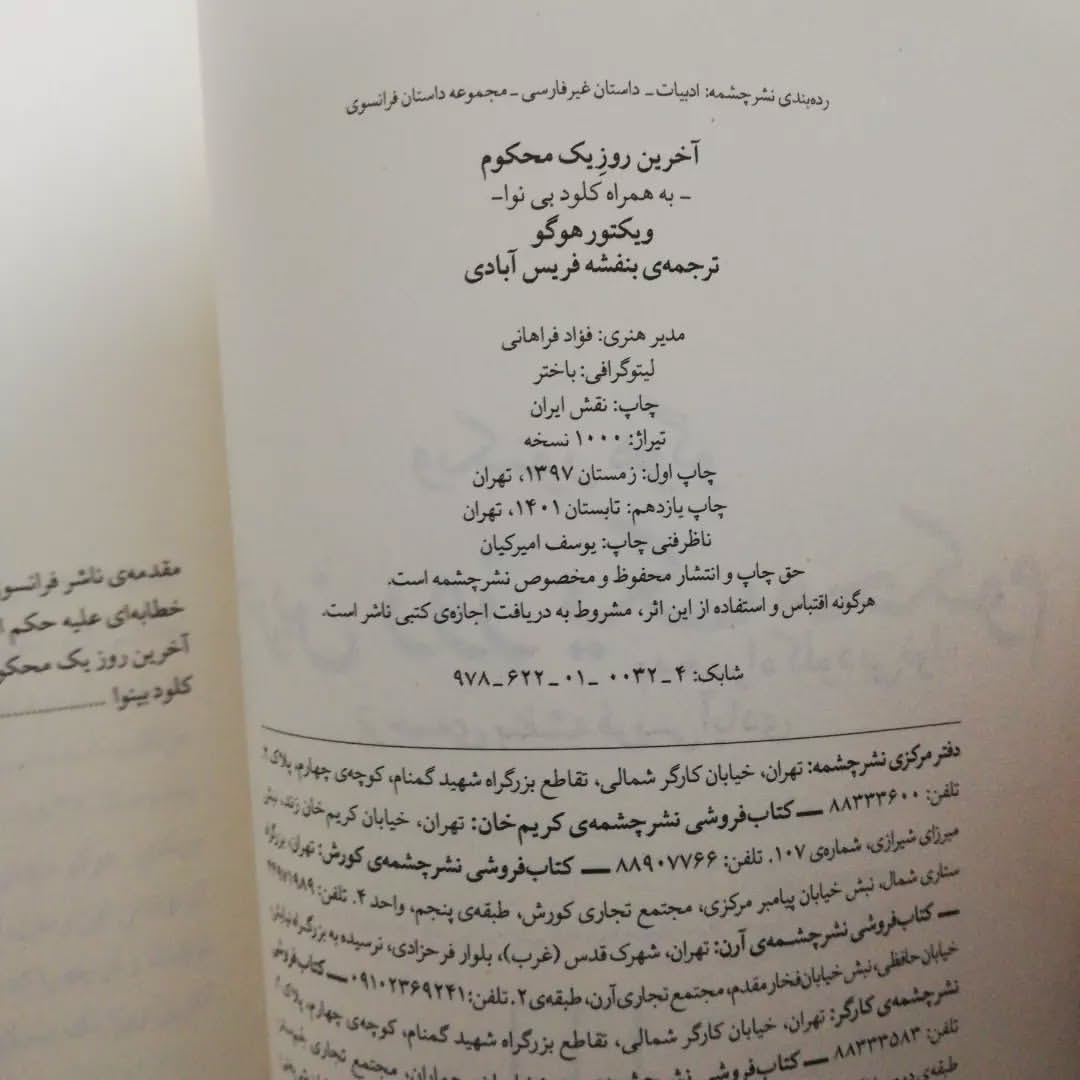 رده‌بندی نشرچشمه: ادبیات ـ داستان غیرفارسی ـ مجموعه داستان فرانسوی
آخرین روزِ یک محکوم
ـ به همراه کلود بی نوا ـ
ویکتور هوگو
ترجمه‌ی بنفشه فریس آبادی
مدیر هنری: فؤاد فراهانی
لیتوگرافی: باختر
چاپ: نقش ایران
تیراژ: ۱۰۰۰ نسخه
چاپ اول: زمستان ۱۳۹۷، تهران
چاپ یازدهم: تابستان ۱۴۰۱، تهران
ناظرفنی چاپ: یوسف امیرکیان
حق چاپ و انتشار محفوظ و مخصوص نشرچشمه است.
هرگونه اقتباس و استفاده از این اثر، مشروط به دریافت اجازه‌ی کتبی ناشر است.
شابک: ۴ ـ ۰۰۳۲ ـ ۰۱ ـ ۶۲۲ ـ ۹۷۸
دفتر مرکزی نشرچشمه: تهران، خیابان کارگر شمالی، تقاطع بزرگراه شهید گمنام، کوچه‌ی چهارم، پلاک
تلفن: ۸۸۳۳۳۶۰۰ — کتاب‌فروشی نشرچشمه‌ی کریم‌خان: تهران، خیابان کریم‌خان زند، نبش
میرزای شیرازی، شماره‌ی ۱۰۷. تلفن: ۸۸۹۰۷۷۶۶ — کتاب‌فروشی نشرچشمه‌ی کورش: تهران، بزرگراه
ستاری شمال، نبش خیابان پیامبر مرکزی، مجتمع تجاری کورش، طبقه‌ی پنجم، واحد ۴. تلفن: ۴۴۹۷۱۹۸۹
— کتاب‌فروشی نشرچشمه‌ی آرن: تهران، شهرک قدس (غرب)، بلوار فرحزادی، نرسیده به بزرگراه نیایش،
خیابان حافظی، نبش خیابان فخار مقدم، مجتمع تجاری آرن، طبقه‌ی ۲. تلفن: ۰۹۱۰۲۳۶۹۲۴۱ — کتاب‌فروشی
نشرچشمه‌ی کارگر: تهران، خیابان کارگر شمالی، تقاطع بزرگراه شهید گمنام، کوچه‌ی چهارم، پلاک
تلفن: ۸۸۳۳۳۵۸۳ — کتاب‌فروشی مجتمع تجاری
مقدمه‌ی ناشر فرانسوی
خطابه‌ای علیه حکم
آخرین روز یک محکوم
کلود بینوا